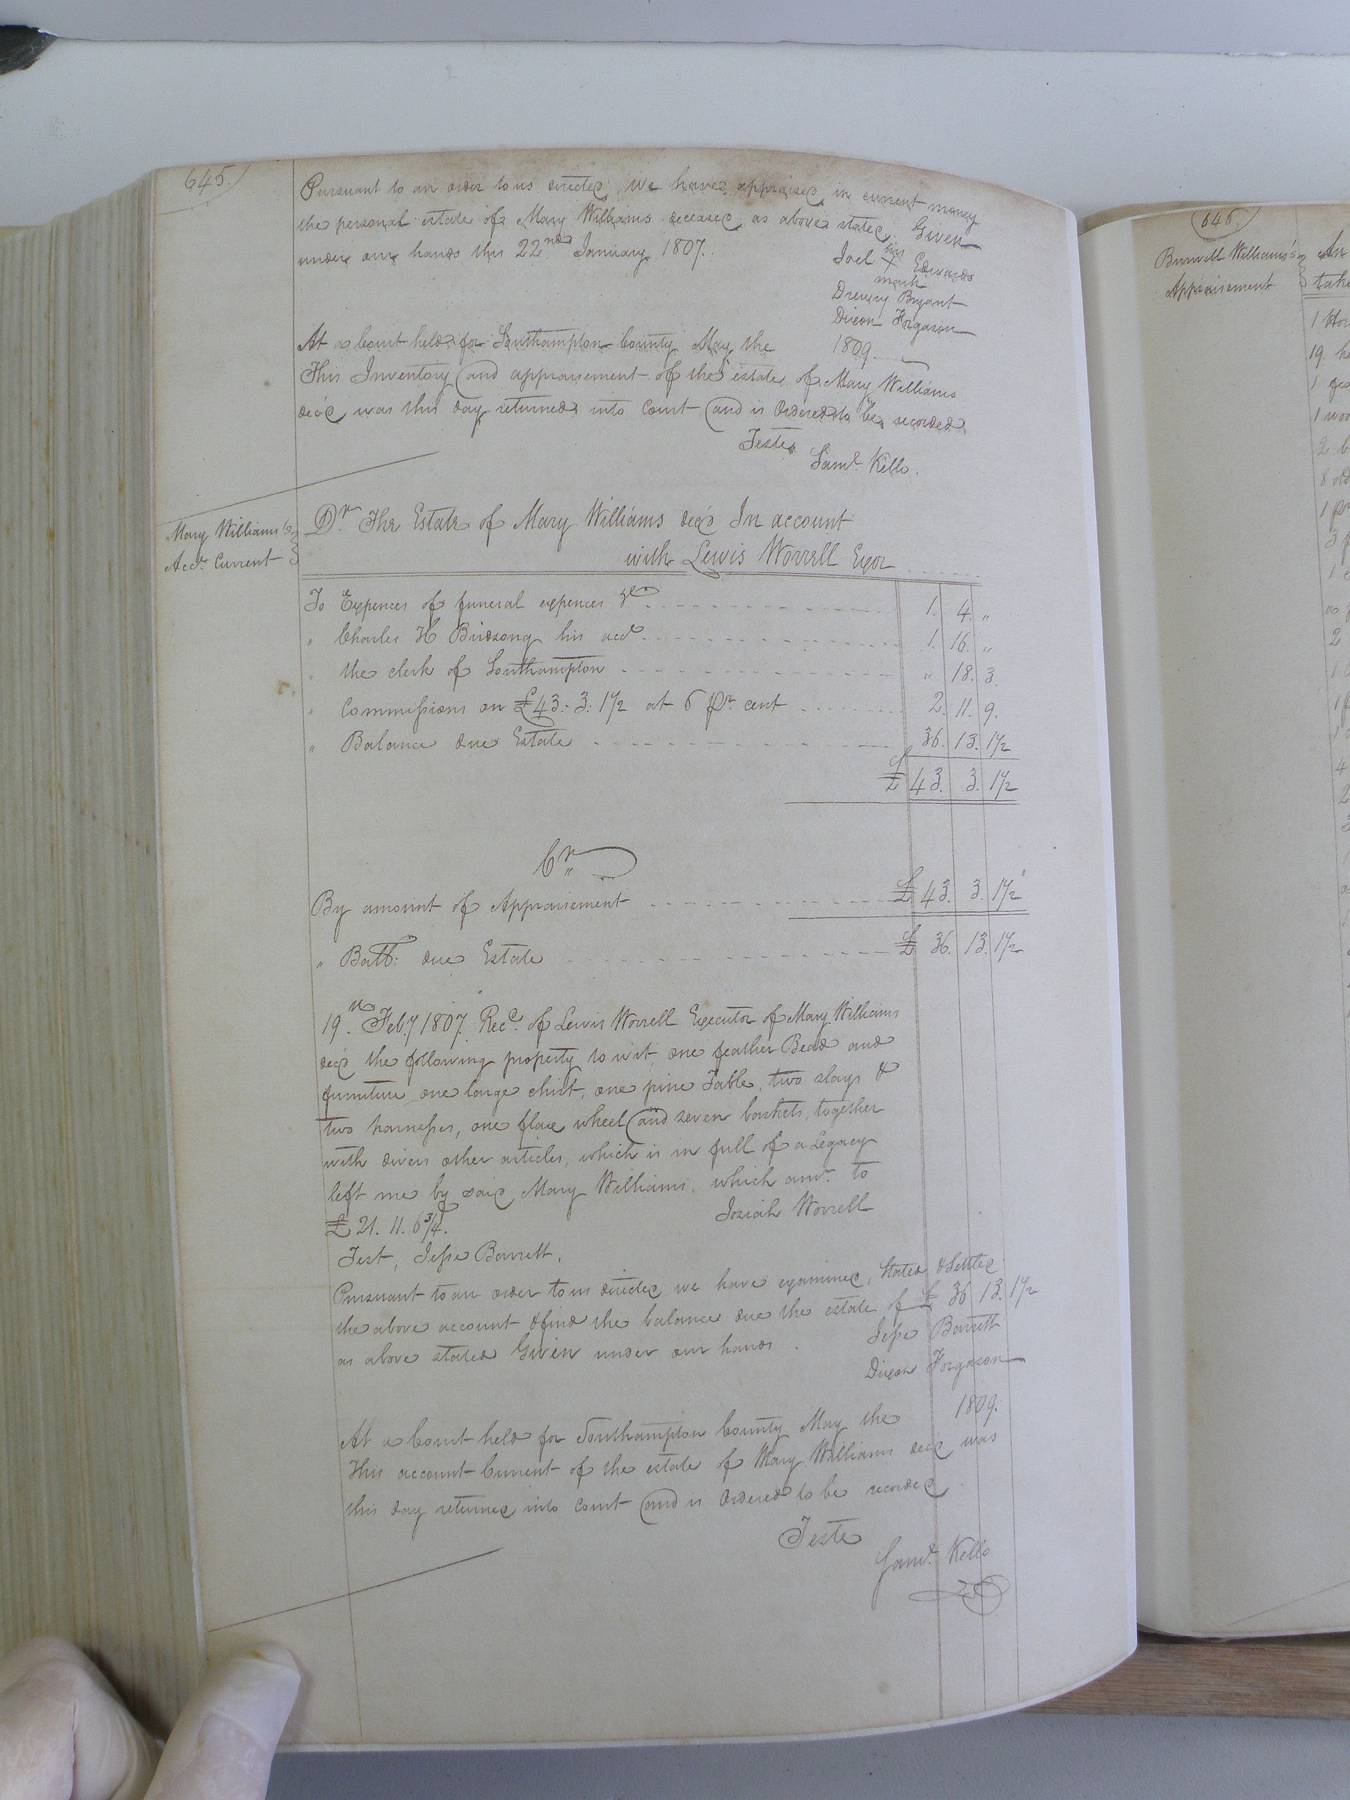 645.
Pursuant to an order to us directed, we have appraised in current money
the personal estate of Mary Williams deceased as above stated. Given
under our hands this 22nd January 1807.
Joel his X mark Edwards
Drewry Bryant
Dixon Forgason
At a Court held for Southampton County May the 1809.
This Inventory and appraisement of the estate of Mary Williams
dec'd was this day returned into Court and is Ordered to be recorded.
Teste
Saml. Kello.
Mary Williams's
Acct. Current
Dr. The Estate of Mary Williams dec'd In account
with Lewis Worrell Exor
To Expences of funeral expences &c 1. 4. "
" Charles H Birdsong his acct 1. 16. "
" the clerk of Southampton " 18. 3.
" Commissions on £43. 3. 1 1/2 at 6 pr. cent 2. 11. 9.
" Balance due Estate 36. 13. 1 1/2
£ 43. 3. 1 1/2
Cr
By amount of Appraisement £ 43. 3. 1 1/2
" Ball: due Estate £ 36. 13. 1 1/2
19th. Feby 1807. Recd. of Lewis Worrell Executor of Mary Williams
dec'd the following property to wit one feather Bead and
furniture one large chist, one pine Table, two slays &
two harnesses, one flax wheel and seven baskets, together
with divers other articles, which is in full of a Legacy
left me by said Mary Williams, which amt. to
£ 21. 11. 6 3/4.
Josiah Worrell
Test, Jesse Barrett.
Pursuant to an order to us directed we have examined, Stated & Settled
the above account & find the balance due the estate of £ 36 13. 1 1/2
as above stated Given under our hands.
Jesse Barrett
Dixon Forgason
At a Court held for Southampton County May the 1809.
This account Current of the estate of Mary Williams dec'd was
this day returned into Court and is Ordered to be recorded
Teste
Saml. Kello
646.
Burwell Williams's
Appraisement
An
take
1
19. he
1
1 woo
2
8 old
1
3
1
2
1
1
4
2
3